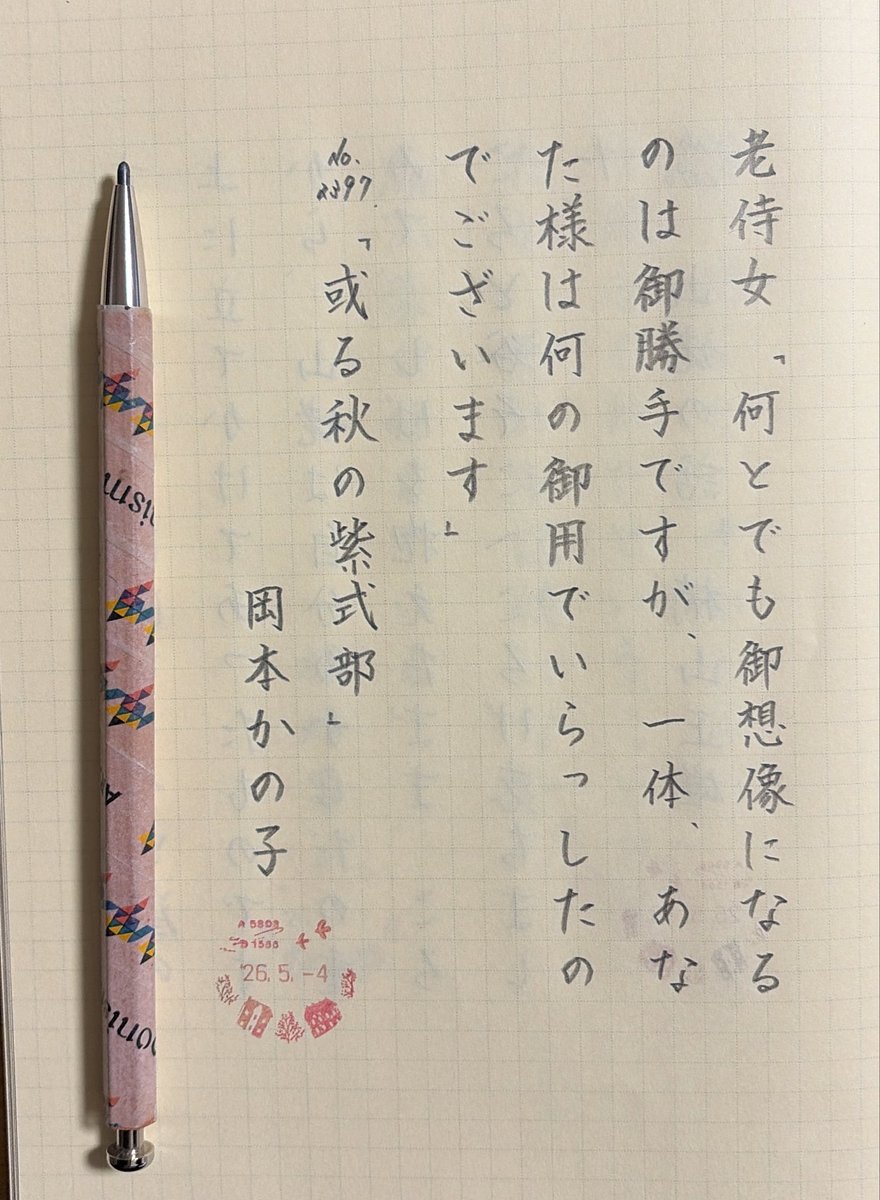 老侍女「何とでも御想像になる
のは御勝手ですが、一体、あな
た様は何の御用でいらっしたの
でございます」
No.
2397
「或る秋の紫式部」
岡本かの子
A 5803
D 1566
'26.5.-4
nism